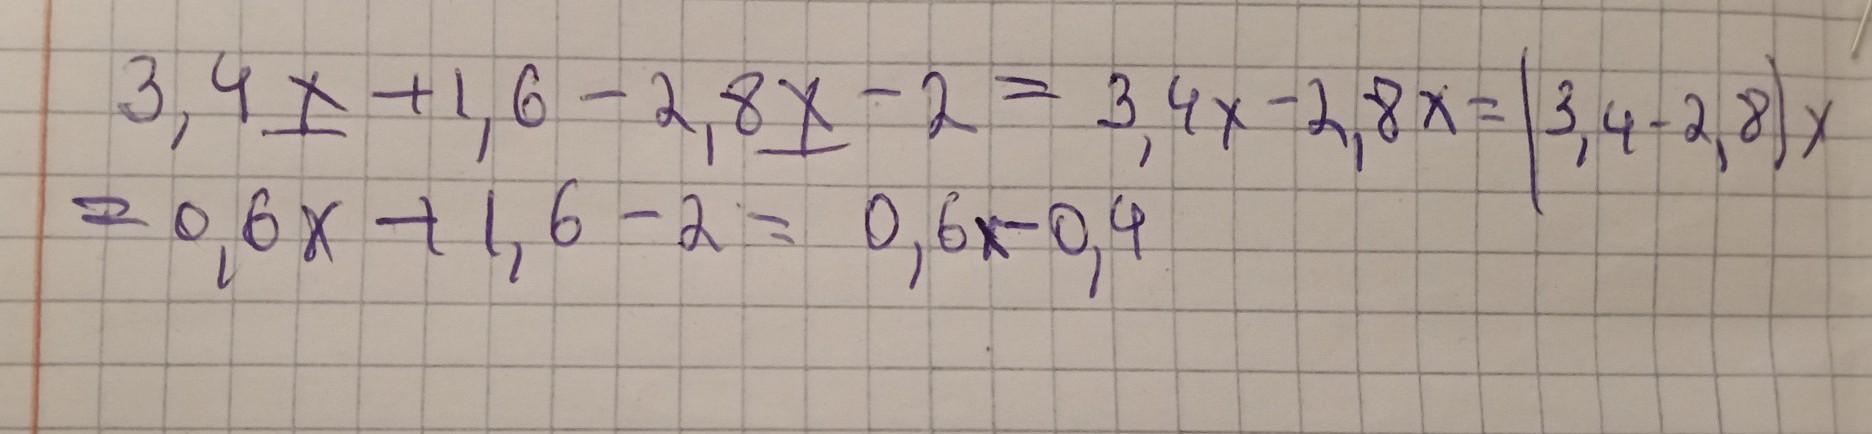 3,4x+1,6-2,8x-2=3,4x-2,8x=(3,4-2,8)x
=0,6x+1,6-2=0,6x-0,4